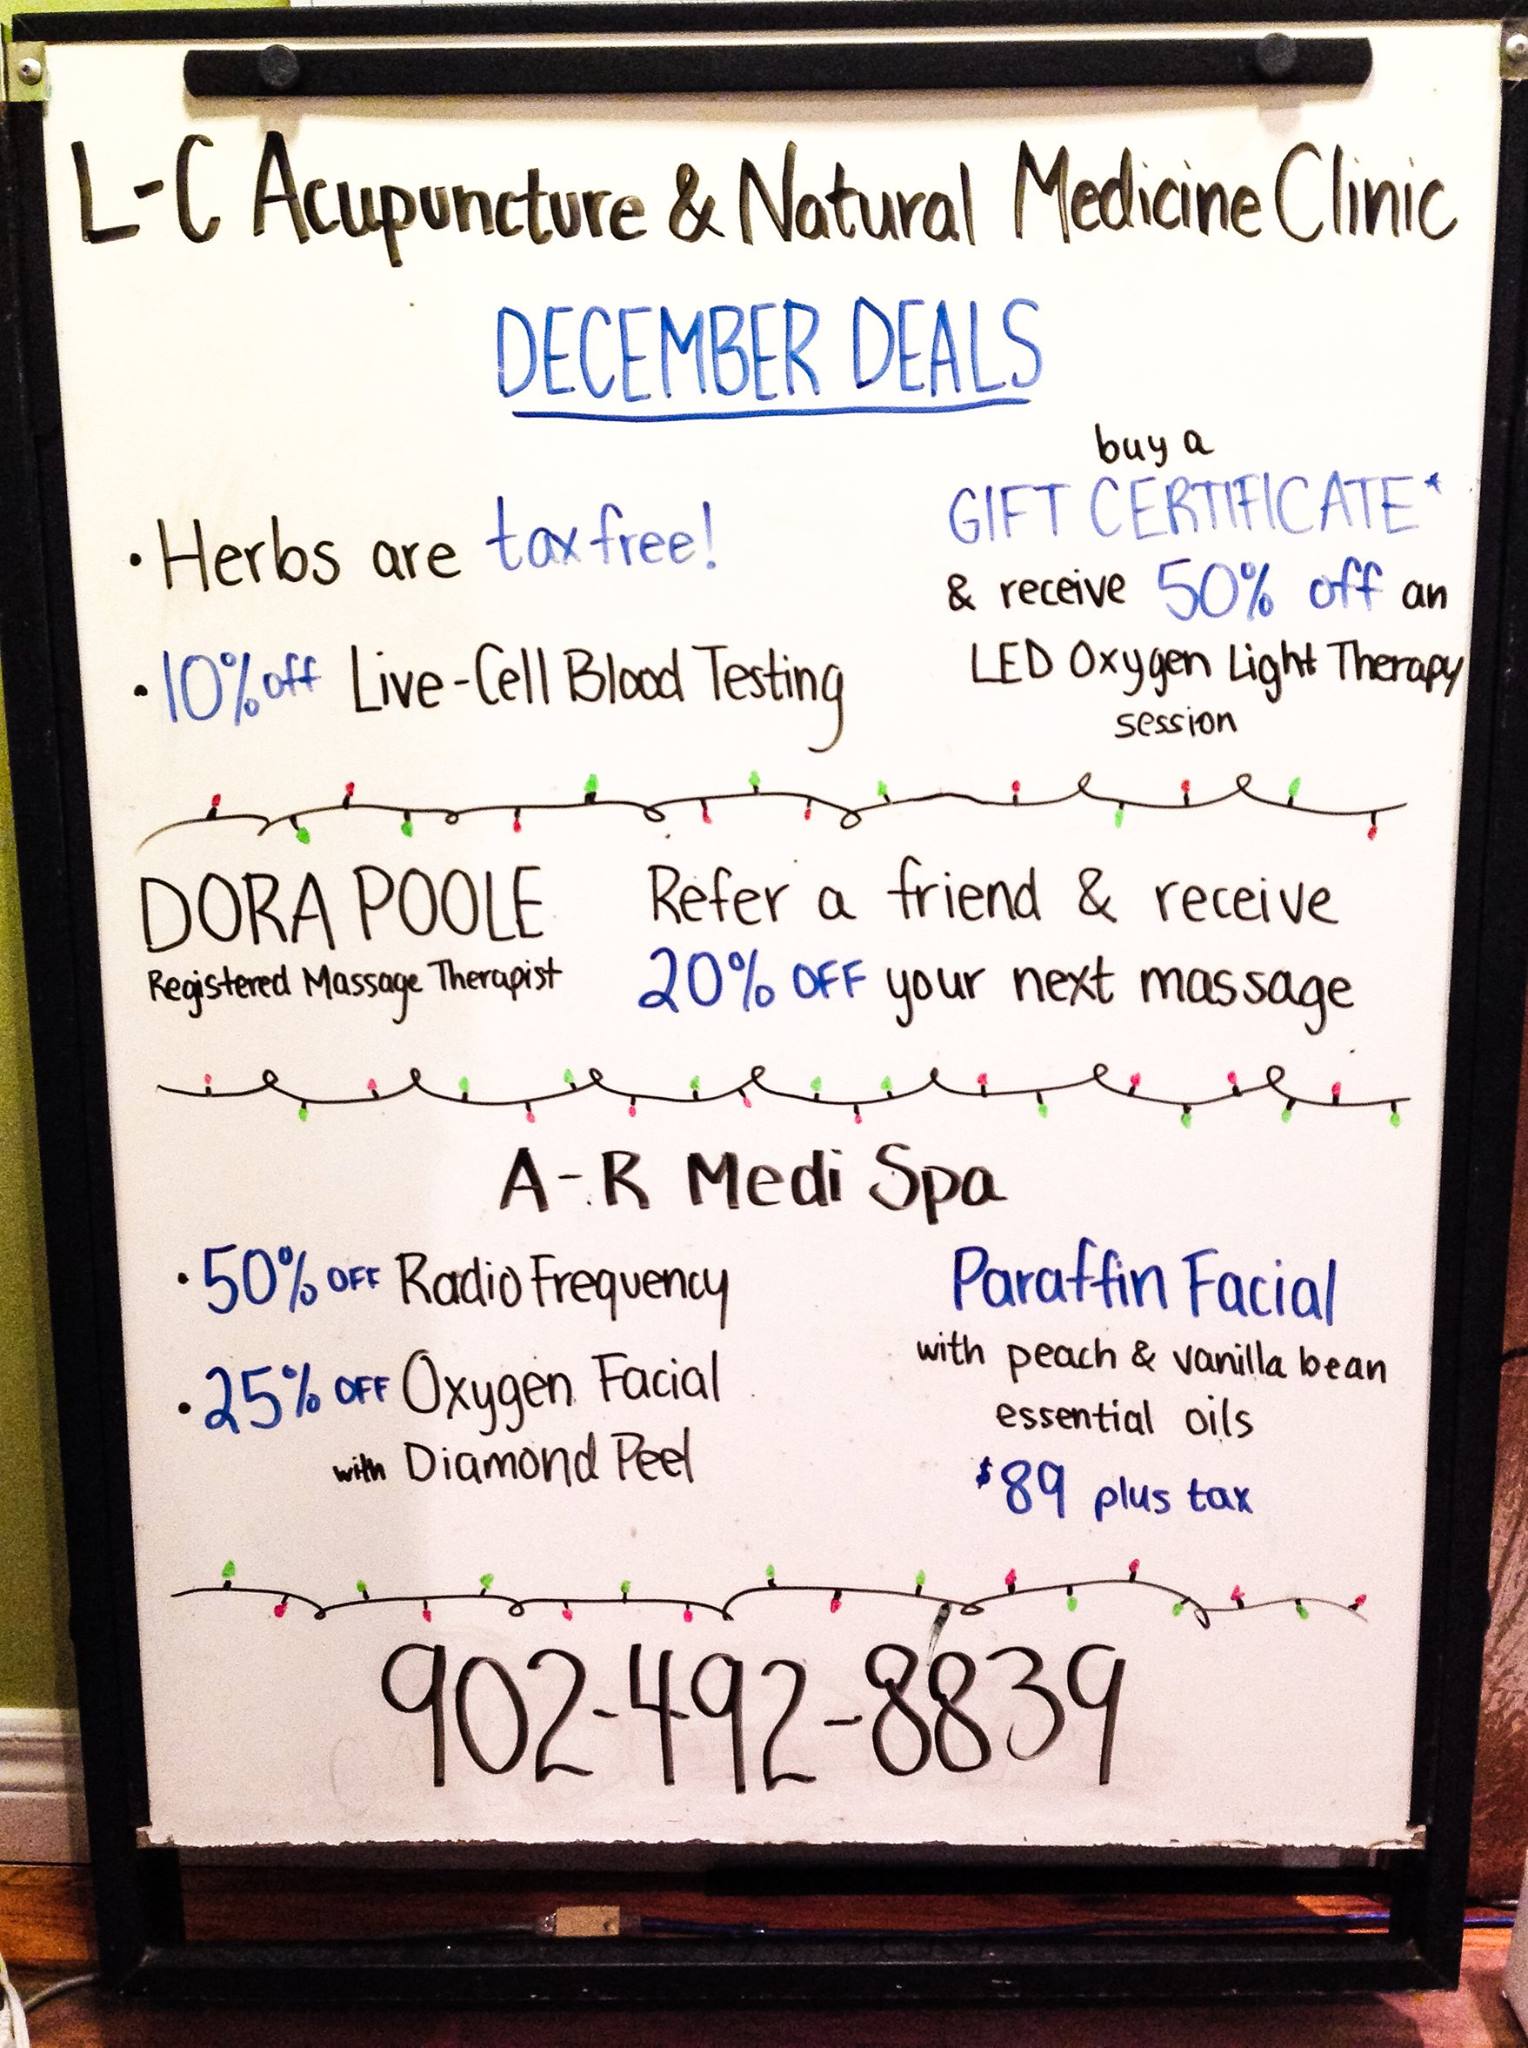 L-C Acupuncture & Natural Medicine Clinic
DECEMBER DEALS
• Herbs are tax free!
• 10% off Live-Cell Blood Testing
buy a
GIFT CERTIFICATE*
& receive 50% off an
LED Oxygen Light Therapy
session
DORA POOLE
Registered Massage Therapist
Refer a friend & receive
20% OFF your next massage
A-R Medi Spa
• 50% OFF Radio Frequency
• 25% OFF Oxygen Facial
with Diamond Peel
Paraffin Facial
with peach & vanilla bean
essential oils
$89 plus tax
902-492-8839